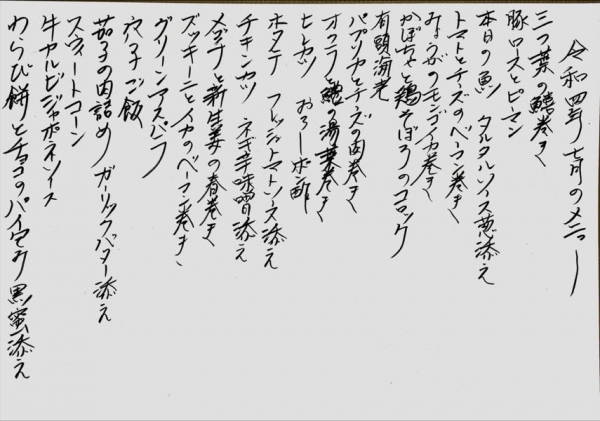 令和四年 七月のメニュー
三つ葉の鱚巻き
豚ロースとピーマン
本日の魚 タルタルソイス恵添え
トマトとチーズのベーコン巻き
みょうがのモンゴイカ巻き
かぼちゃと鶏そぼろのコロッケ
有頭海老
パプリカとチーズの肉巻き
オクラと鱧の湯葉巻き
ヒレカツ おろしポン酢
ホタテ フレッシュトマトソース添え
チキンカツ ネギ辛味噌添え
メゴチと新生姜の春巻き
ズッキーニとイカのベーコン巻き
グリーンアスパラ
穴子ご飯
茄子の肉詰め ガーリックバター添え
スウィートコーン
牛カルビジャポネソイス
わらび餅とチョコのパイ包み 黒蜜添え